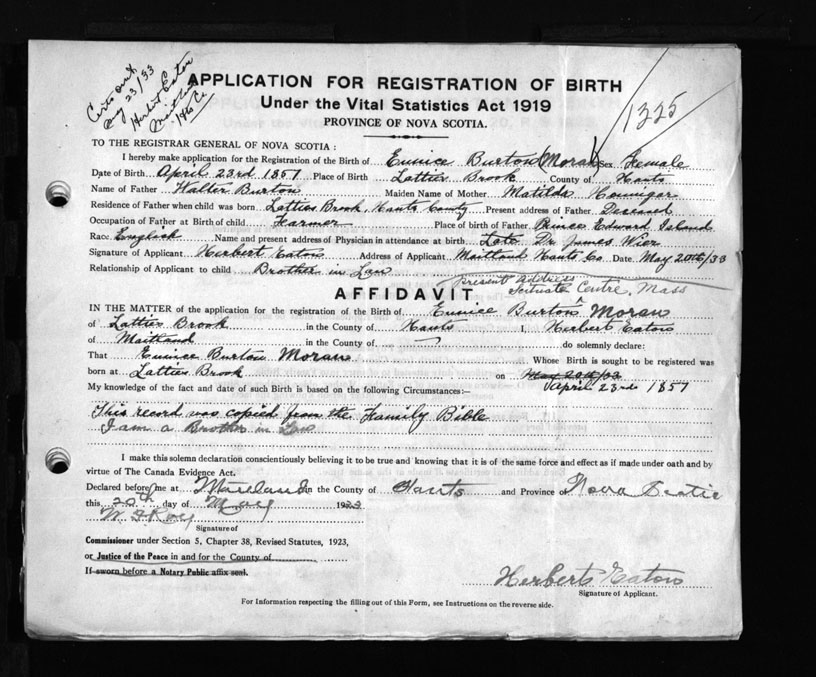 Aug 23/33
Herbert Eaton
Maitland
1325
APPLICATION FOR REGISTRATION OF BIRTH
Under the Vital Statistics Act 1919
PROVINCE OF NOVA SCOTIA.
TO THE REGISTRAR GENERAL OF NOVA SCOTIA :
I hereby make application for the Registration of the Birth of Eunice Burton (Moran) Sex Female
Date of Birth April 23rd 1857 Place of Birth Latties Brook County of Hants
Name of Father Walter Burton Maiden Name of Mother Matilda
Residence of Father when child was born Latties Brook, Hants County Present address of Father Deceased
Occupation of Father at Birth of child Farmer Place of birth of Father Prince Edward Island
Race English Name and present address of Physician in attendance at birth Late Dr. James Wier
Signature of Applicant Herbert Eaton Address of Applicant Maitland Hants Co Date May 20th/33
Relationship of Applicant to child Brother in Law
Present address
Scituate Centre, Mass
AFFIDAVIT.
IN THE MATTER of the application for the registration of the Birth of Eunice Burton Moran
of Latties Brook in the County of Hants I, Herbert Eaton
of Maitland in the County of do solemnly declare:
That Eunice Burton Moran Whose Birth is sought to be registered was
born at Latties Brook on May 20th/33
April 23rd 1857
My knowledge of the fact and date of such Birth is based on the following Circumstances:-
This record was copied from the Family Bible
I am a Brother in Law
I make this solemn declaration conscientiously believing it to be true and knowing that it is of the same force and effect as if made under oath and by
virtue of The Canada Evidence Act.
Declared before me at Maitland in the County of Hants and Province of Nova Scotia
this 20th day of May 1933
Signature of
Commissioner under Section 5, Chapter 38, Revised Statutes, 1923,
or Justice of the Peace in and for the County of
If sworn before a Notary Public affix seal.
Herbert Eaton
Signature of Applicant.
For Information respecting the filling out of this Form, see Instructions on the reverse side.